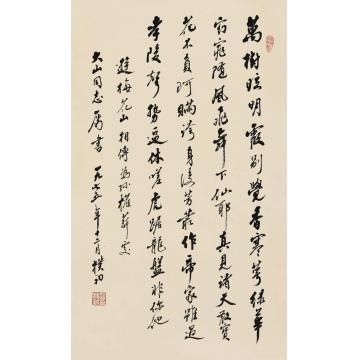 萬樹眩明霞別覺香寒萼綠華
窈窕隨風飛舞下仙耶真見諸天散寶
花不負阿瞞誇身後芳叢作帝家難道
孝陵聲勢逼休嗟虎踞龍盤非你他
遊梅花山相傳為孫權葬處
大山同志屬書 一九七五年十二月樸初